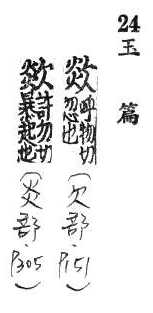 24 玉篇
欻 呼物切 忽也 (欠部 P151)
欻 許勿切 暴起也 (炎部 P305)